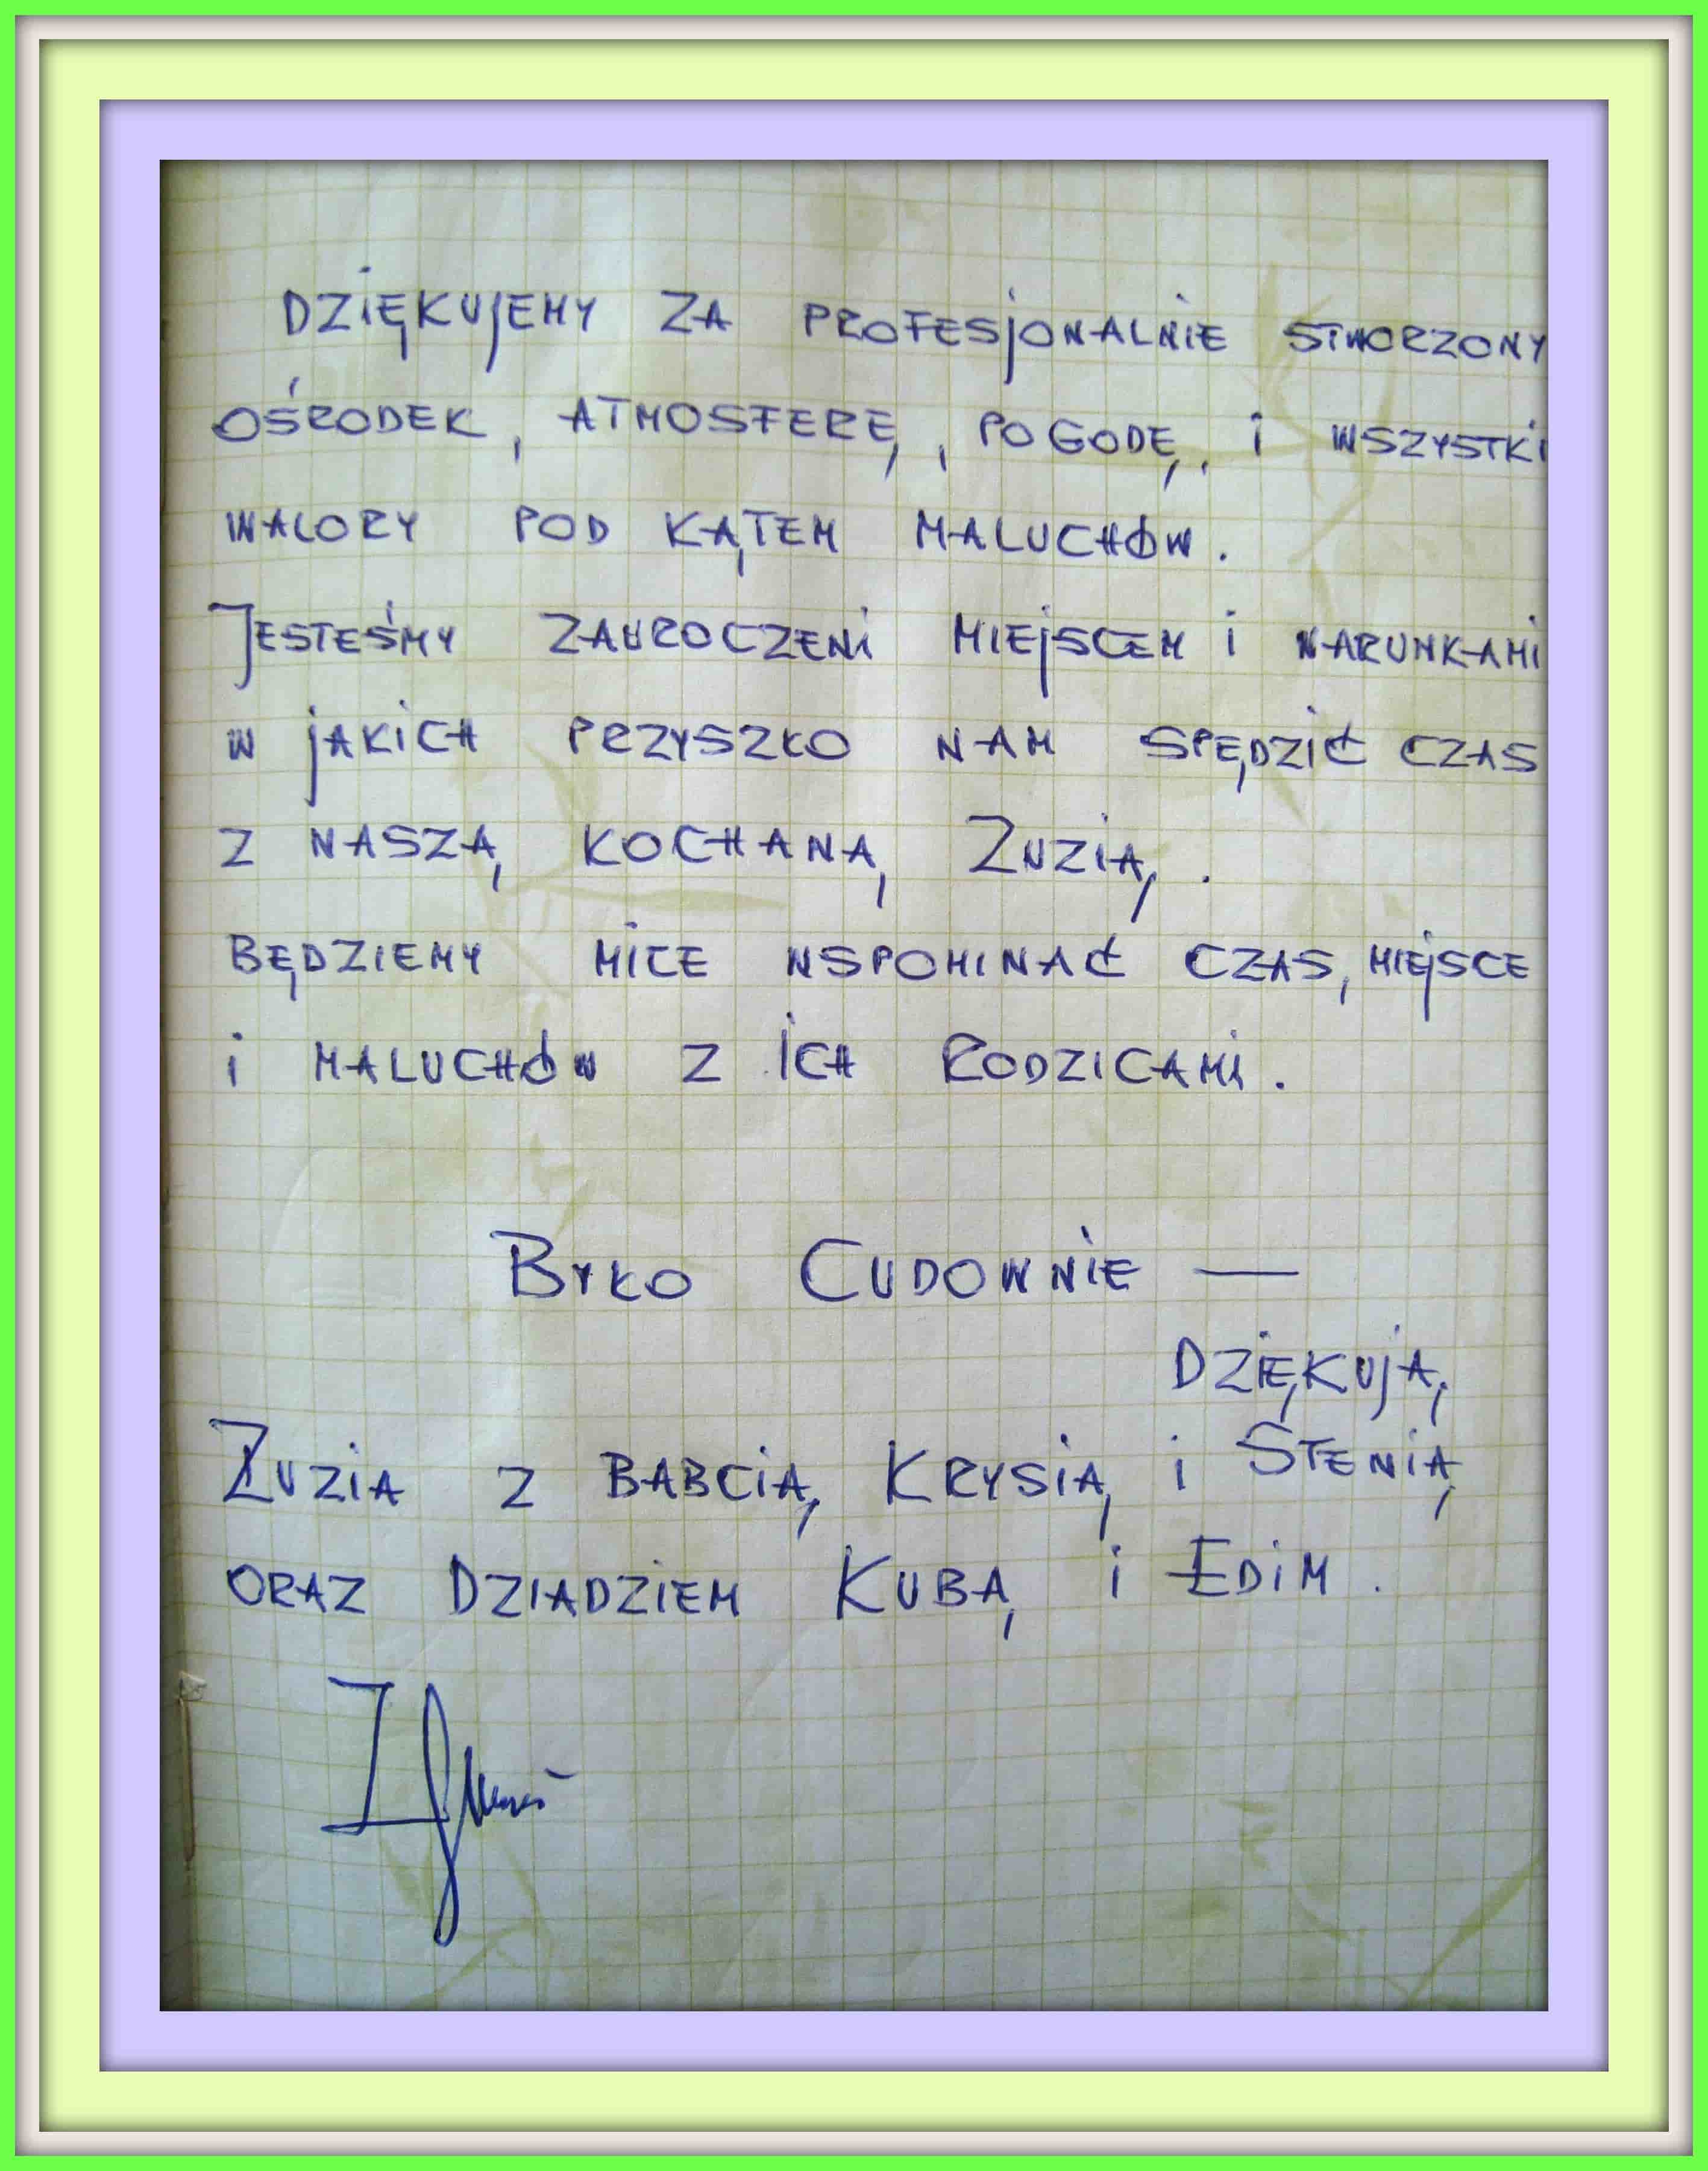 DZIĘKUJEMY ZA PROFESJONALNIE STWORZONY
OŚRODEK, ATMOSFERĘ, POGODĘ, i WSZYSTKI
WALORY POD KĄTEM MALUCHÓW.
JESTEŚMY ZAUROCZENI MIEJSCEM i WARUNKAMI
W JAKICH PRZYSZŁO NAM SPĘDZIĆ CZAS
Z NASZĄ KOCHANĄ ZUZIĄ.
BĘDZIEMY MILE WSPOMINAĆ CZAS, MIEJSCE
i MALUCHÓW Z ICH RODZICAMI.
BYŁO CUDOWNIE —
DZIĘKUJĄ
ZUZIA Z BABCIĄ KRYSIĄ i STENIĄ
ORAZ DZIADZIEM KUBĄ i EDIM.